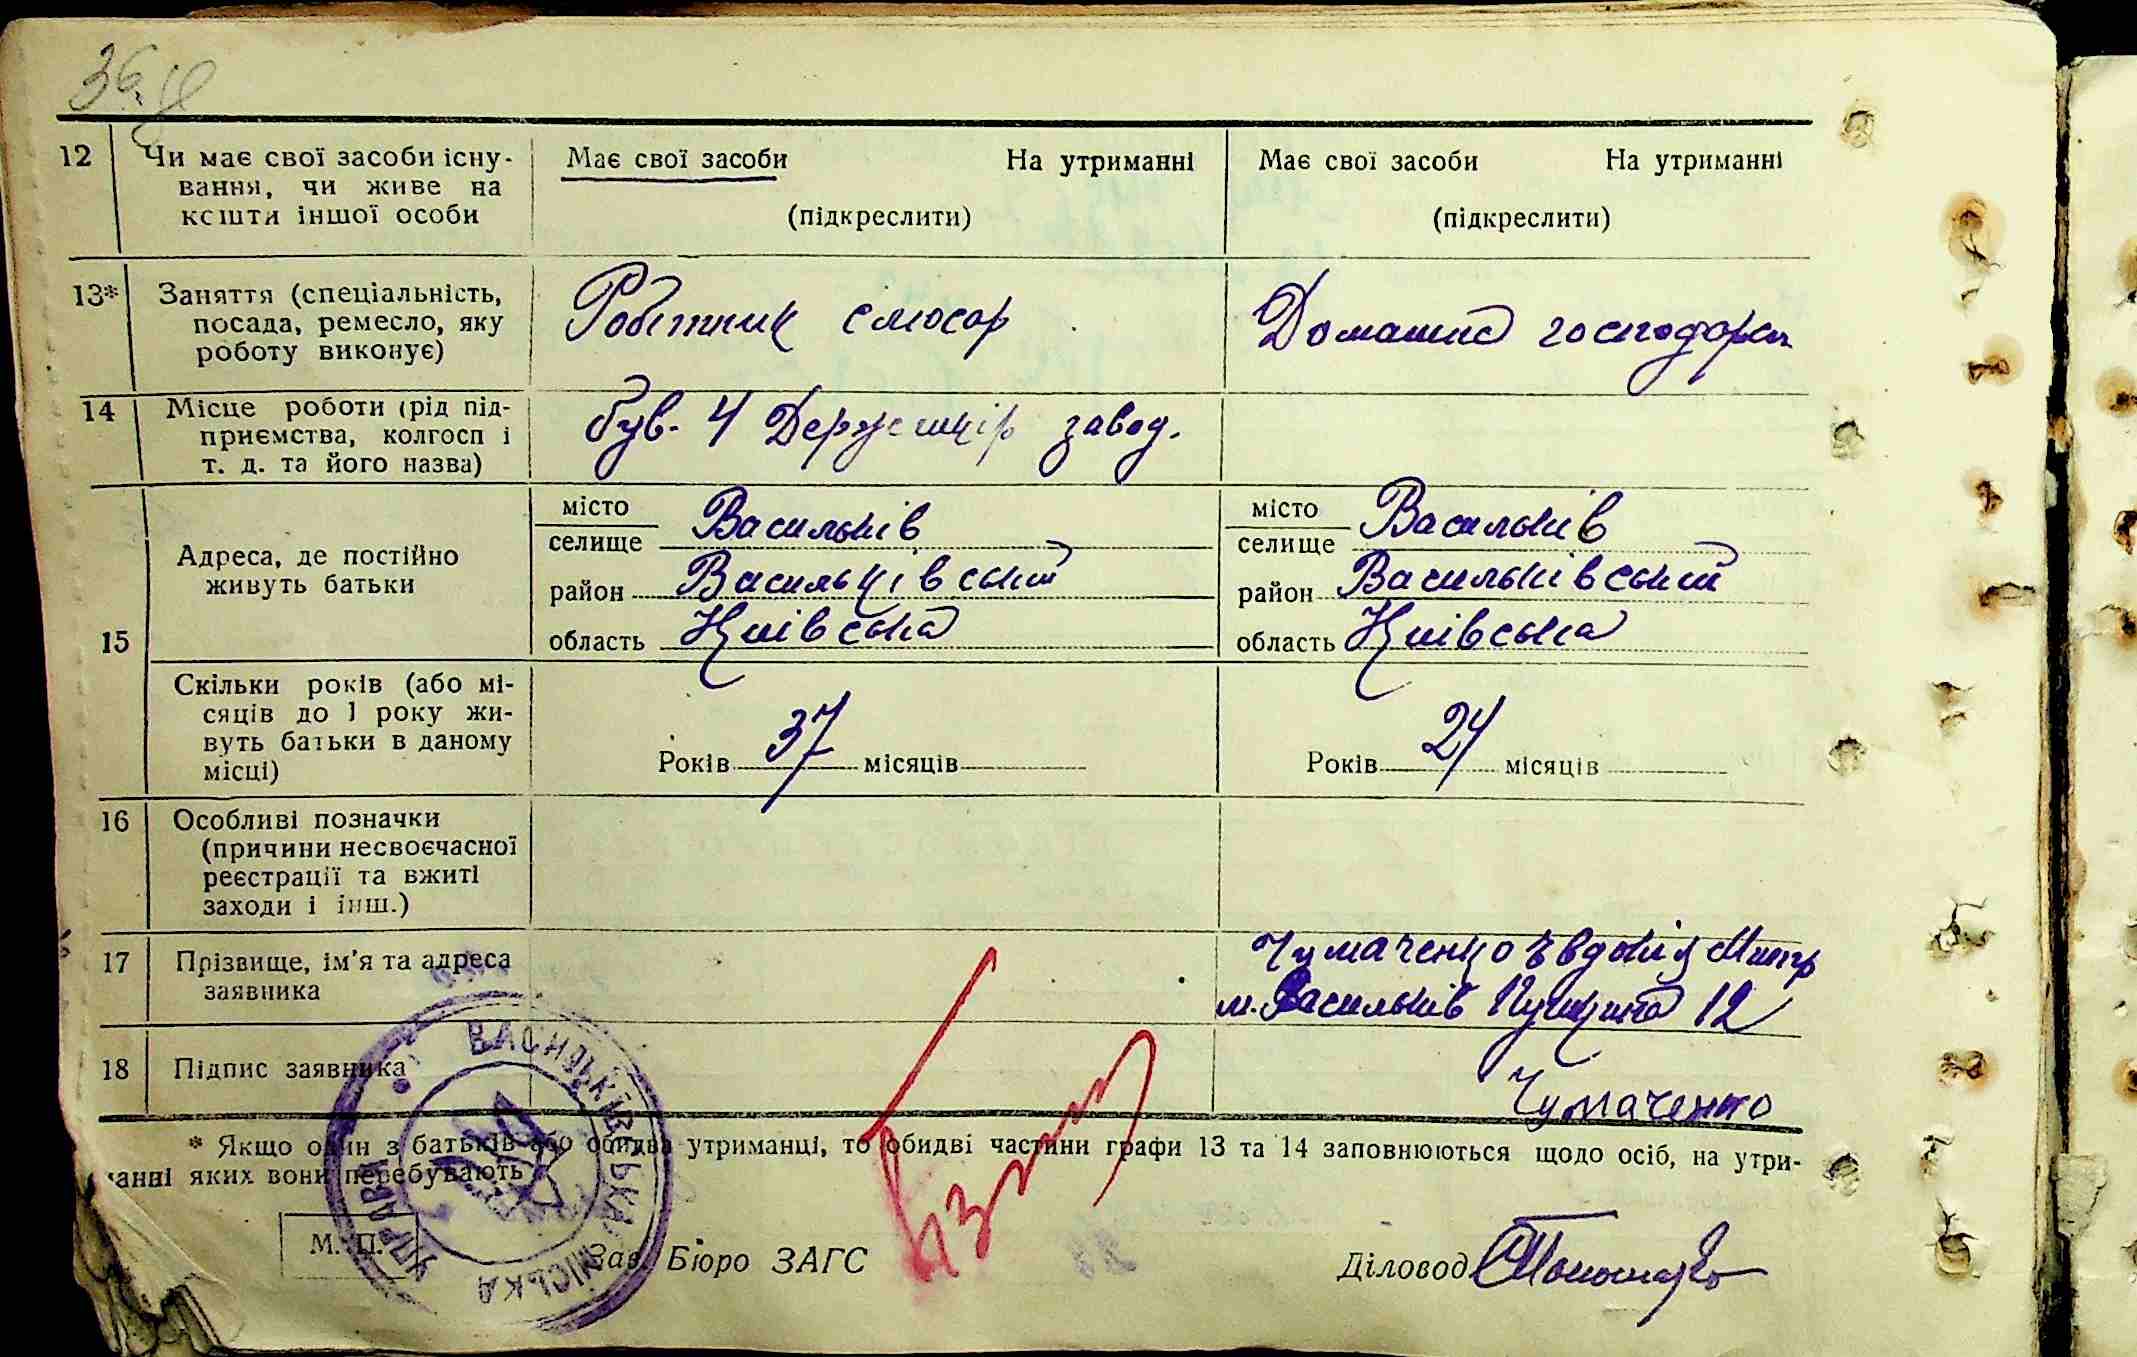 36
12 Чи має свої засоби існу-
вання, чи живе на
кошти іншої особи
Має свої засоби На утриманні
(підкреслити)
Має свої засоби На утриманні
(підкреслити)
13* Заняття (спеціальність,
посада, ремесло, яку
роботу виконує)
Робітник слюсар
Домашня господарка
14 Місце роботи (рід під-
приємства, колгосп і
т. д. та його назва)
був. 4 Держшкір завод.
15
Адреса, де постійно
живуть батьки
місто
селище Васильків
район Васильківський
область Київська
місто
селище Васильків
район Васильківський
область Київська
Скільки років (або мі-
сяців до 1 року жи-
вуть батьки в даному
місці)
Років 37 місяців
Років 24 місяців
16 Особливі позначки
(причини несвоєчасної
реєстрації та вжиті
заходи і інш.)
17 Прізвище, ім'я та адреса
заявника
Чумаченко Євдокія Митр
м. Васильків Пушкіна 12
18 Підпис заявника
Чумаченко
* Якщо один з батьків або обидва утриманці, то обидві частини графи 13 та 14 заповнюються щодо осіб, на утри-
манні яких вони перебувають
М. П.
Зав. Бюро ЗАГС
Діловод
ВАСИЛЬКІВСЬКА МІСЬКА УПРАВА